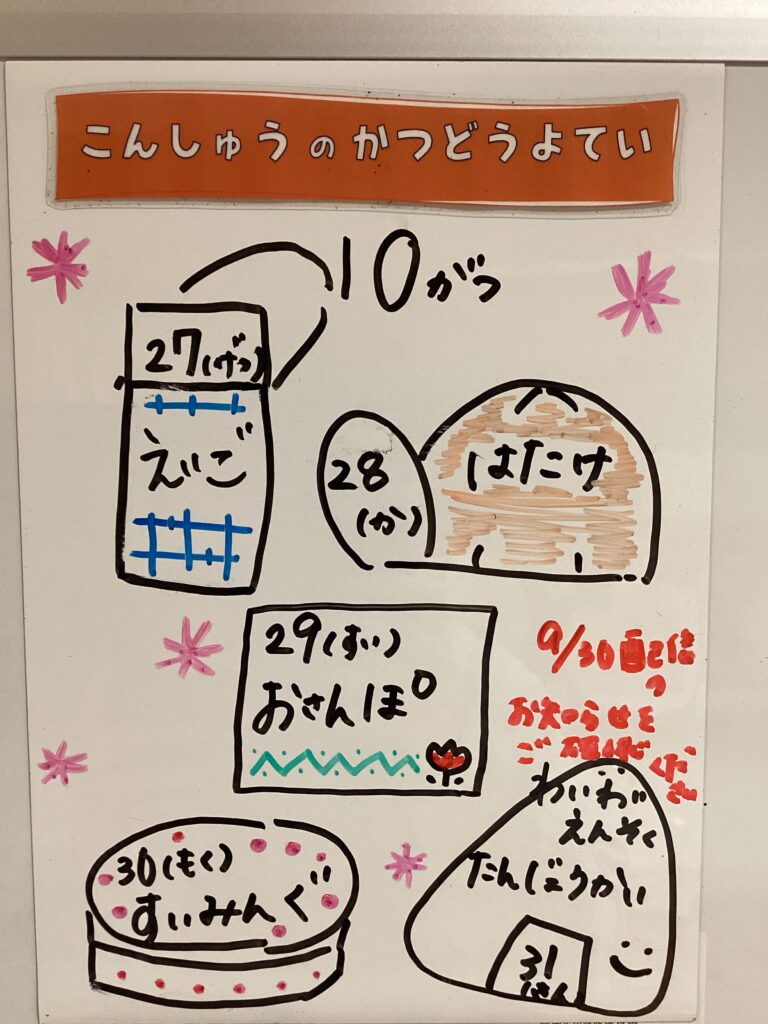 こんしゅうのかつどうよてい
10がつ
27(げつ)
えいご
28
(か)
はたけ
29(すい)
おさんぽ
9/30配信
の
お知らせを
ご確認くだ
さい
30(もく)
すいみんぐ
わいわい
えんそく
たんじょうかい
31
(きん)